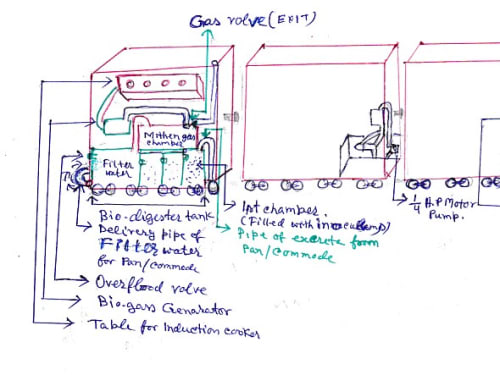 Gas volve (EFIT)
Mithen gas
chamber
Filter
water
Bio-digester tank
Delivery pipe of
Filter water
for Pan/commode
Overflood valve
Bio-gass Genarator
Table for Induction cooker
1pt chamber.
(Filled with inoculamp)
Pipe of excreta from
Pan/commode
1/4 H.P Motor
Pump.